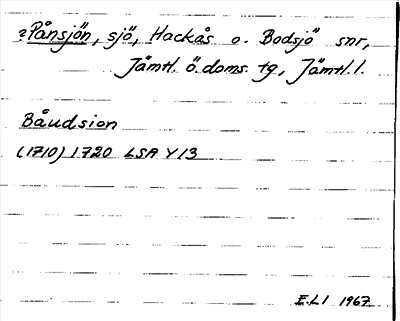 ?Pånsjön, sjö, Hackås o. Bodsjö snr,
Jämtl. ö. doms. tg, Jämtl. l.
Båudsion
(1710) 1720 LSA Y13
E.L.I 1967